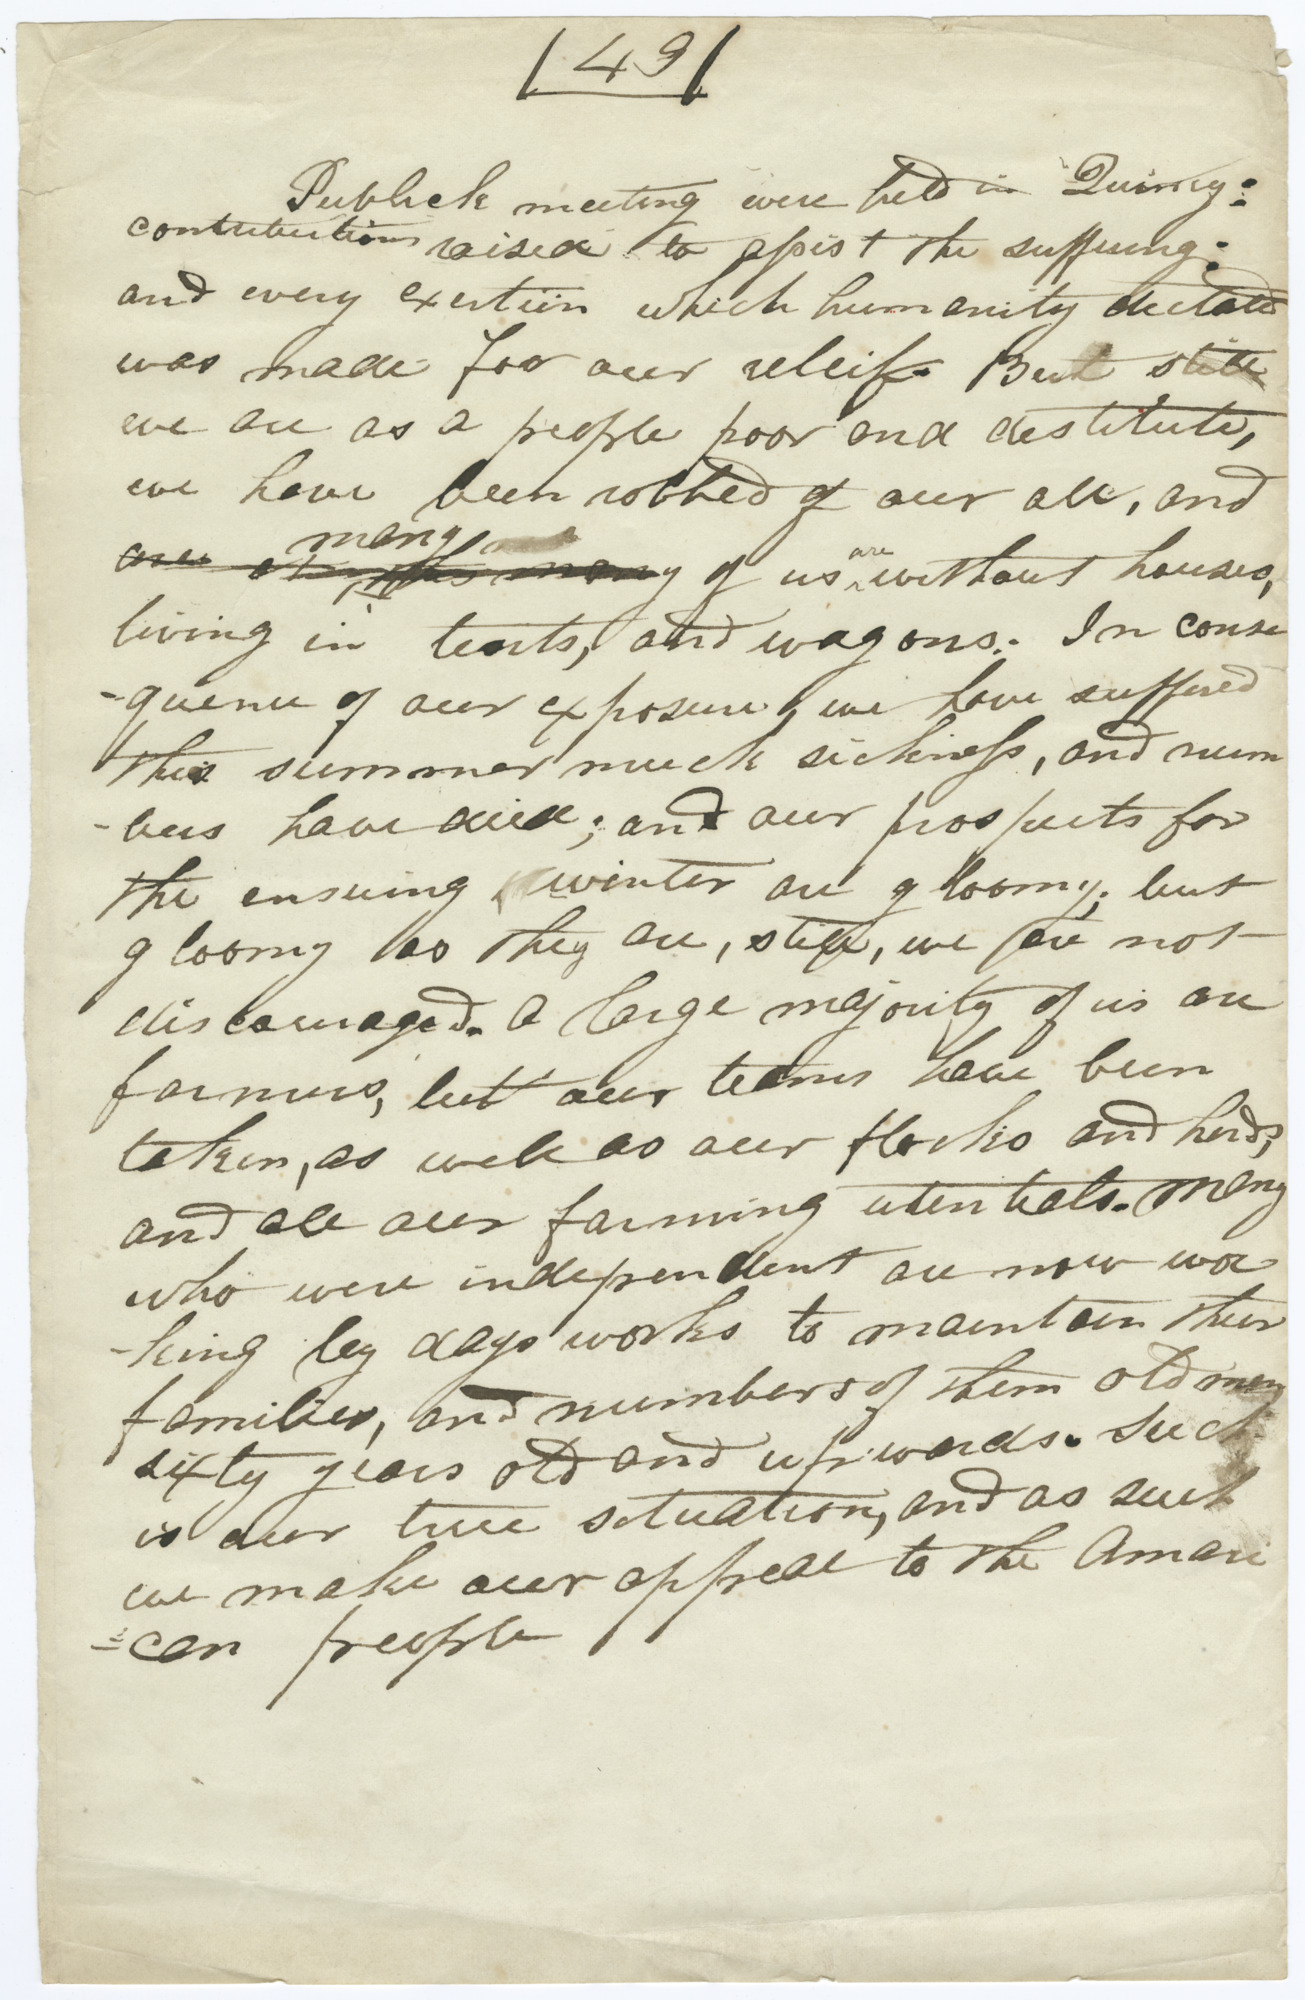 49
Publick meeting were held in Quincy:
contributions raised to assist the suffering:
and every exertion which humanity dictated
was made for our releif. But still
we are as a people poor and destitute,
we have been robbed of our all, and
many
are
of us are without houses,
living in tents, and wagons. In conse
-quence of our exposure, we have suffered
this summer much sickness, and num
-bers have died; and our prospects for
the ensuing winter are gloomy; but
gloomy as they are, still, we are not
discouraged. A large majority of us are
farmers, but our teams have been
taken, as well as our flocks and herds,
and all our farming utentials. Many
who were independent are now wor
-king by days works to maintain their
families, and numbers of them old men
sixty years old and upwards. Such
is our true situation, and as such
we make our appeal to the Ameri
-can people